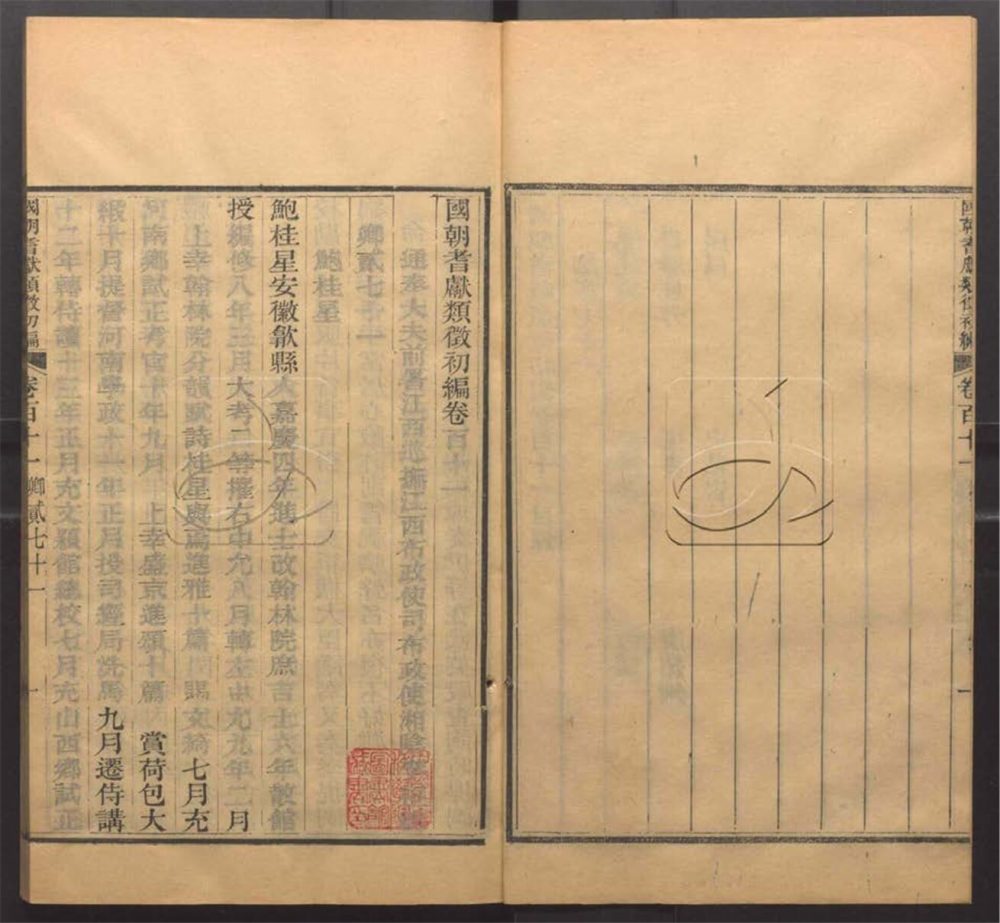 國朝耆獻類徵初編 卷百十一
國朝耆獻類徵初編卷百十一
通奉大夫前署江西巡撫江西布政使司布政使湘陰
卿貳七十一
鮑桂星
鮑桂星安徽歙縣人嘉慶四年進士改翰林院庶吉士六年散館
授編修八年三月大考二等擢右中允八月轉左中允九年二月
上幸翰林院分韻賦詩桂星與焉進雅十篇賜文綺七月充
河南鄉試正考官十年九月上幸盛京進頌十篇賞荷包大
緞十月提督河南學政十一年正月授司經局洗馬九月遷侍講
十二年轉侍讀十三年正月充文穎館總校七月充山西鄉試正
國朝耆獻類徵初編 卷百十一 卿貳七十一 一